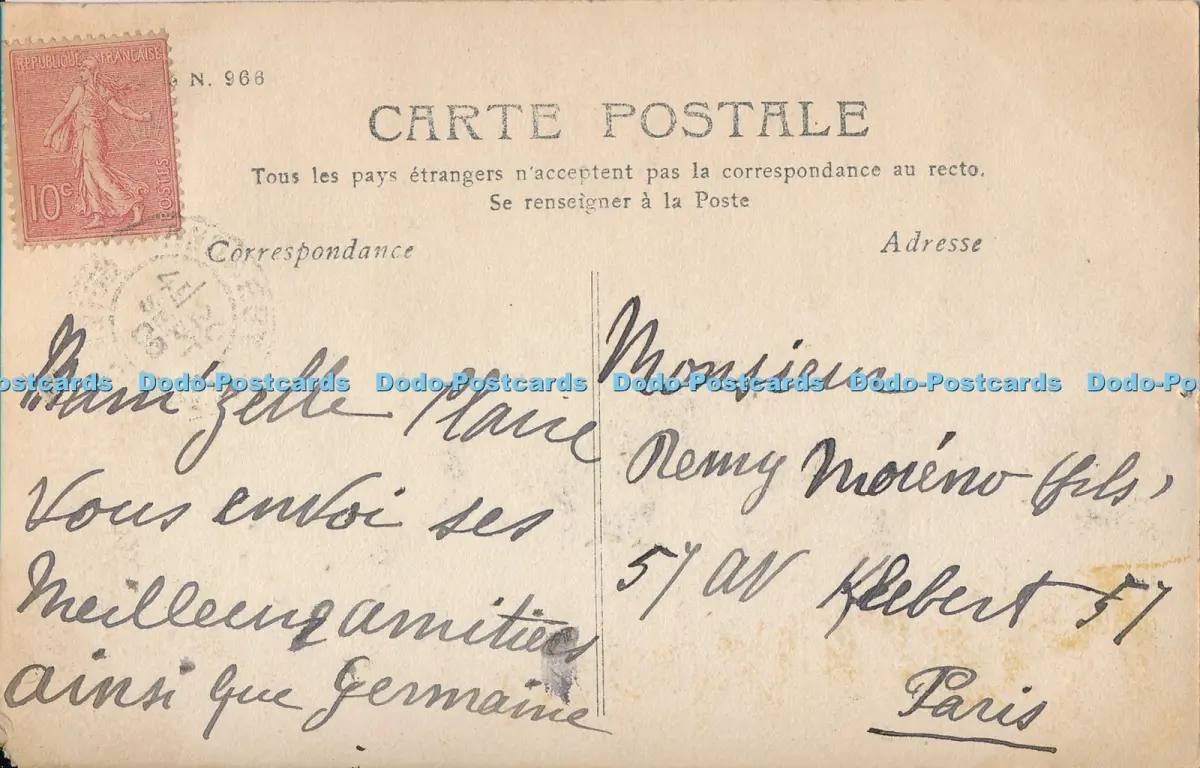 RÉPUBLIQUE FRANÇAISE
10c
POSTES
N. 966
CARTE POSTALE
Tous les pays étrangers n'acceptent pas la correspondance au recto.
Se renseigner à la Poste
Correspondance
Adresse
Mam'zelle Claire
Vous envoi ses
Meilleurs amitiées
ainsi que Germaine
Monsieur
Remy Moréno (fils)
57 av Klebert 57
Paris
Dodo-Postcards Dodo-Postcards Dodo-Postcards Dodo-Postcards